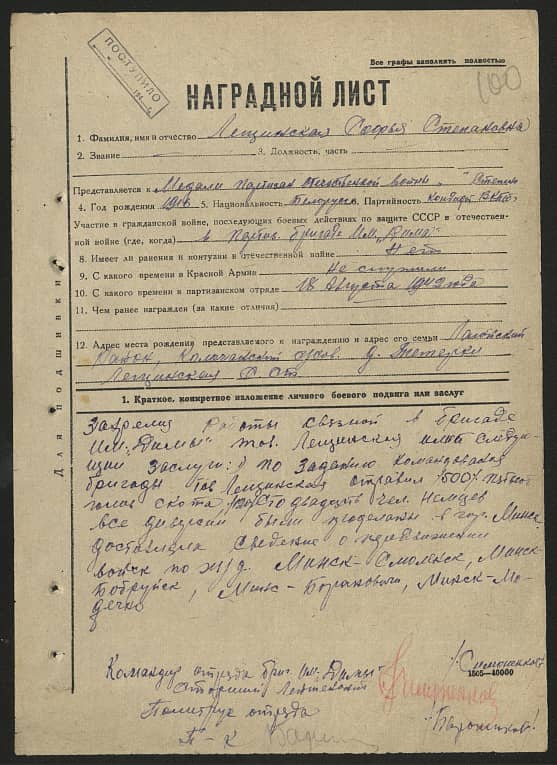 ПОСТУПИЛО
100
Все графы заполнить полностью
НАГРАДНОЙ ЛИСТ
1. Фамилия, имя и отчество Лещинская Софья Степановна
2. Звание 3. Должность, часть
Представляется к Медали партизан отечественной войны "
4. Год рождения 5. Национальность Белоруска Партийность Кондидат
Участие в гражданской войне, последующих боевых действиях по защите СССР и отечествен-
ной войне (где, когда) в партиз. бригаде Им. "Дима"
8. Имеет ли ранения и контузии в отечественной войне Нет
9. С какого времени в Красной Армии Не служила
10. С какого времени в партизанском отряде 18 Августа 1942 года
11. Чем ранее награжден (за какие отличия)
12. Адрес места рождения представляемого к награждению и адрес его семьи
Район, с/сов. д.
Лещинская С. Ст.
Для подшивки
1. Краткое, конкретное изложение личного боевого подвига или заслуг
За время Работы связной в бригаде
Им. "Димы" тов. Лещинская имет следую-
щии заслуги: По Заданию Командования
бригады тов Лещинская отравила 500
голов скота, сто двадцать чел. Немцев
все диверсии были проделаны в гор. Минск
доставляла сведение о продвижении
войск по ж/д. Минск-Смоленск, Минск
Бобруйск, Минск-Барановичи, Минск-Мо-
дечно
/Симоненко/
1505—40000
Командир отряда бриг. Им. "Димы"
Старший Лейтенант
Политрук отряда